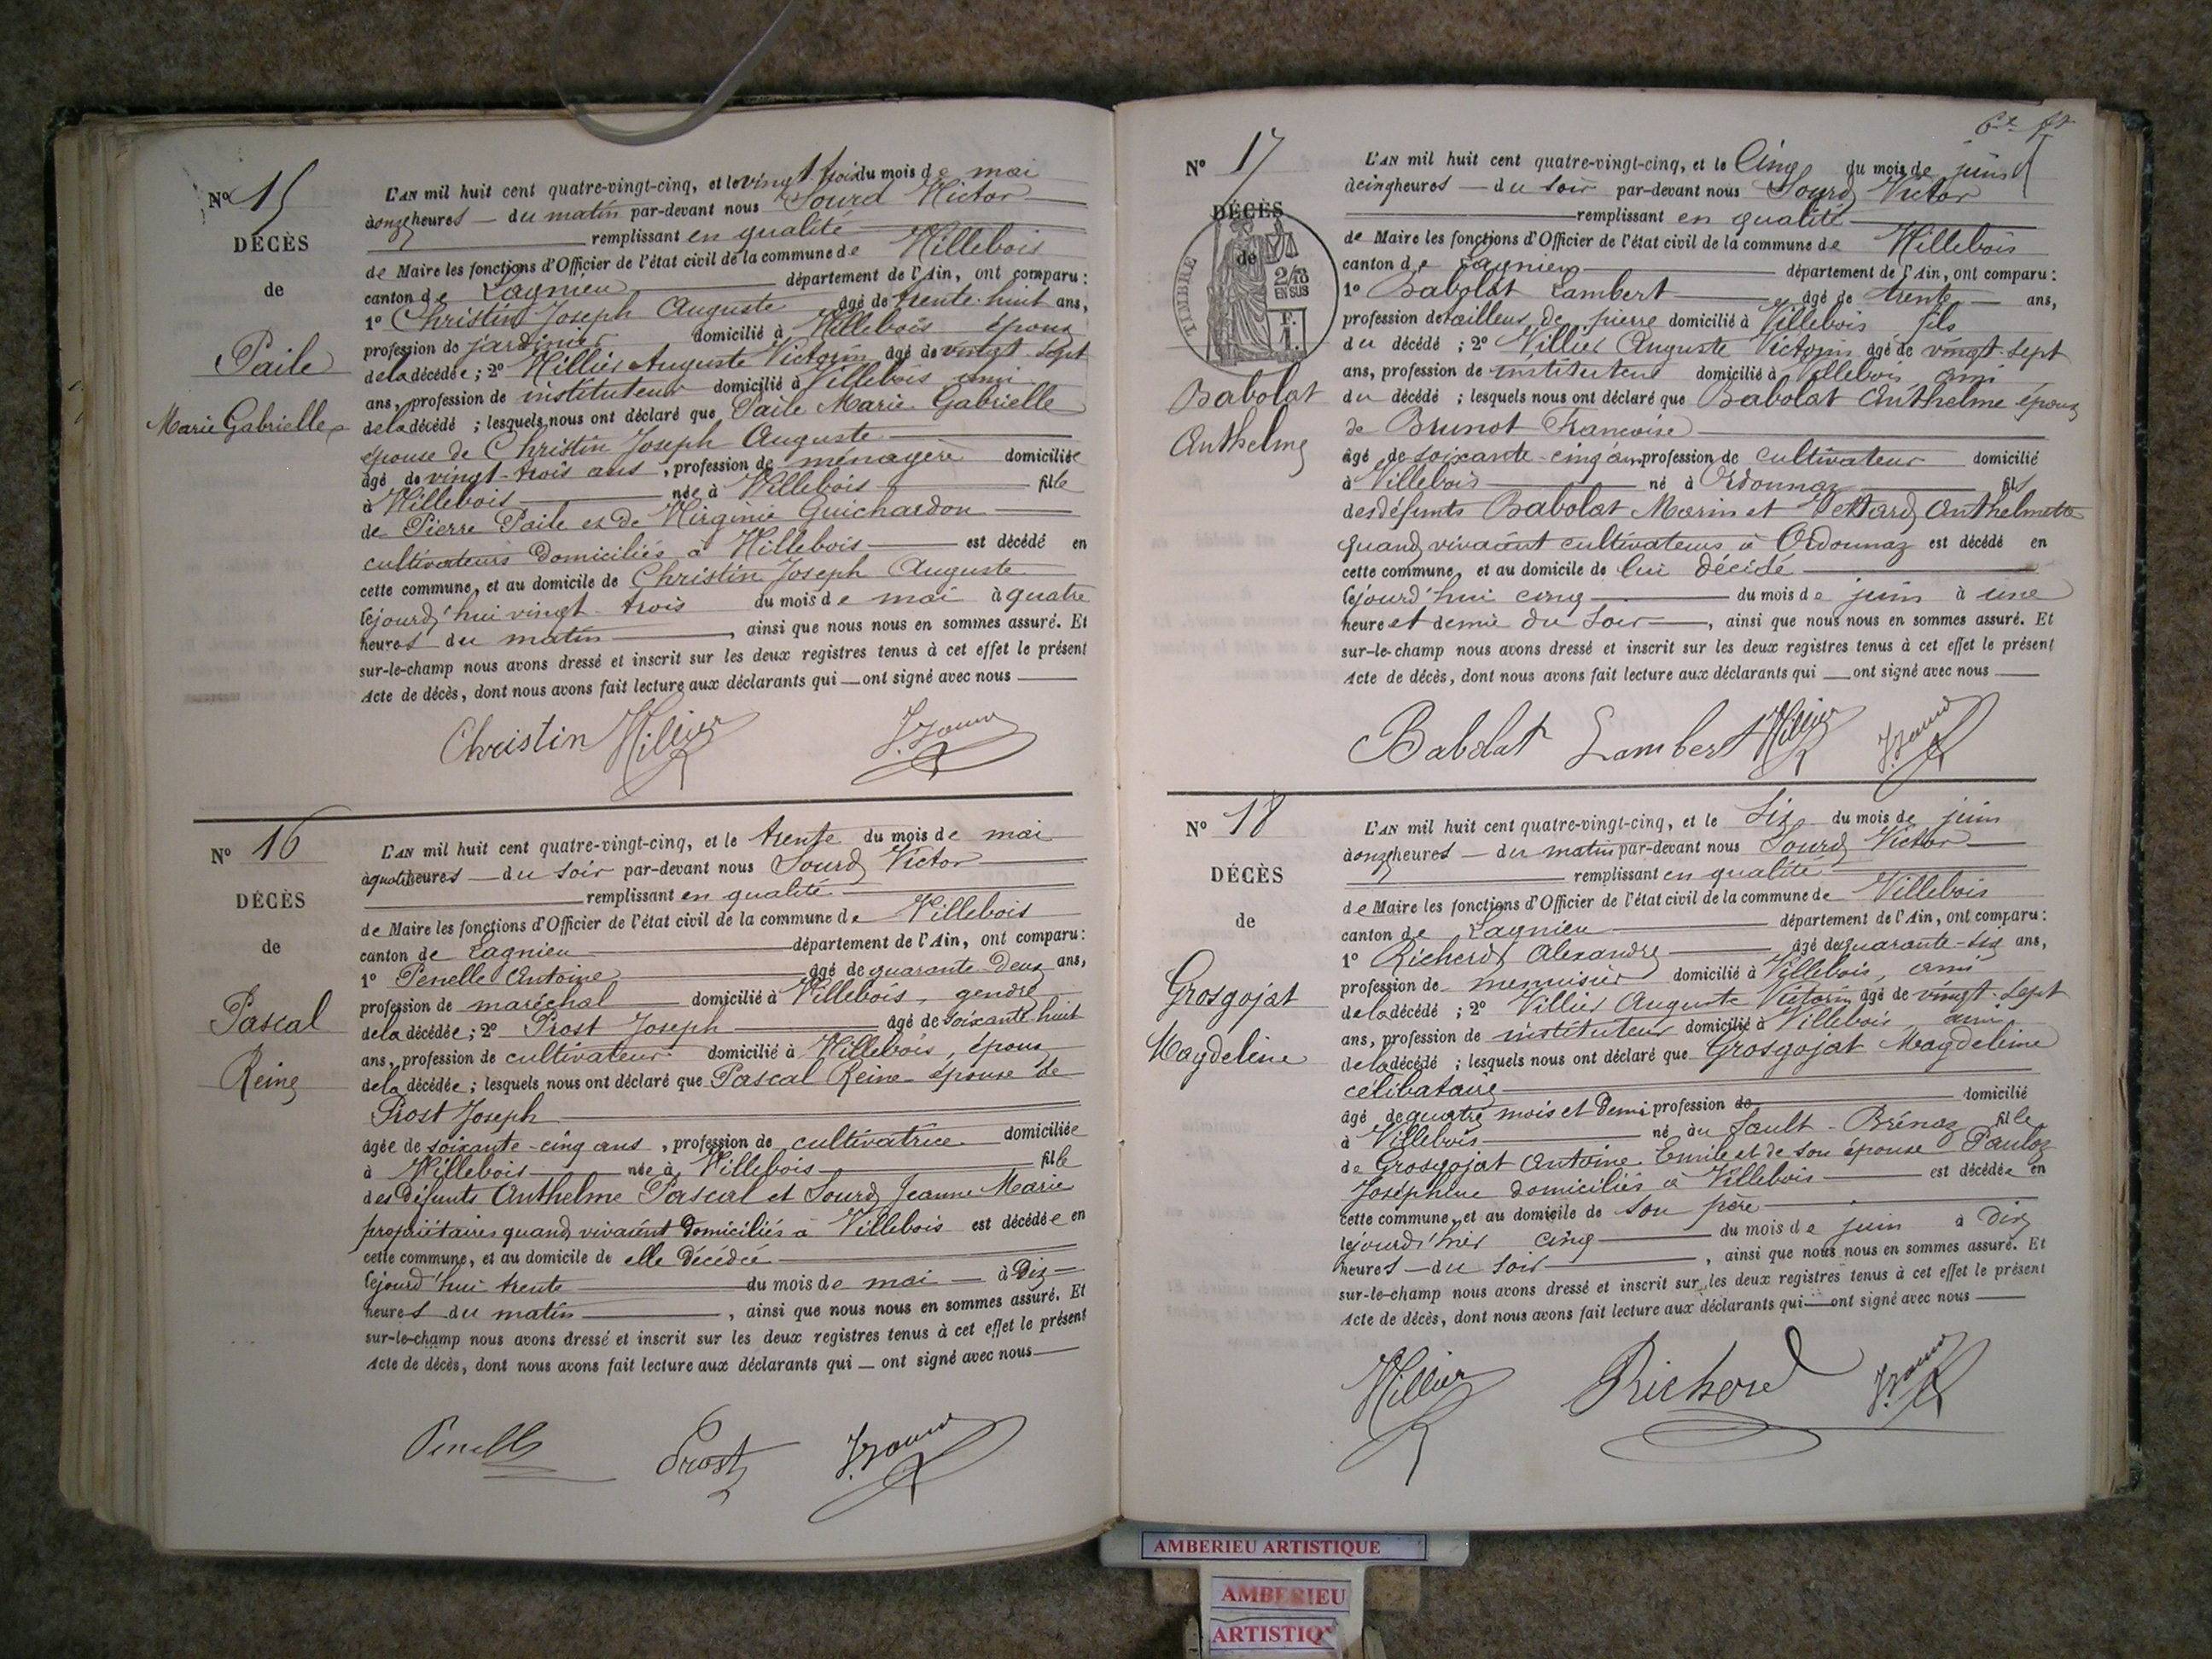 Nº 15
DÉCÈS
de
Paile
Marie Gabrielle
L'AN mil huit cent quatre-vingt-cinq, et le vingt trois du mois de mai
à onze heures du matin par-devant nous Sourd Victor
remplissant en qualité
de Maire les fonctions d'Officier de l'état civil de la commune de Villebois
canton de Lagnieu département de l'Ain, ont comparu :
1º Christin Joseph Auguste âgé de trente-huit ans,
profession de jardinier domicilié à Villebois époux
de la décédée ; 2º Villier Auguste Victorin âgé de vingt-sept
ans, profession de instituteur domicilié à Villebois ami
de la décédé ; lesquels nous ont déclaré que Paile Marie Gabrielle
épouse de Christin Joseph Auguste
âgé de vingt-trois ans, profession de ménagère domiciliée
à Villebois née à Villebois fille
de Pierre Paile et de Virginie Guichardon
cultivateurs domiciliés à Villebois est décédé en
cette commune, et au domicile de Christin Joseph Auguste
lejourd'hui vingt-trois du mois de mai à quatre
heures du matin, ainsi que nous nous en sommes assuré. Et
sur-le-champ nous avons dressé et inscrit sur les deux registres tenus à cet effet le présent
Acte de décès, dont nous avons fait lecture aux déclarants qui ont signé avec nous
Christin Villier V. Sourd
Nº 16
DÉCÈS
de
Pascal
Reine
L'AN mil huit cent quatre-vingt-cinq, et le trente du mois de mai
à quatre heures du soir par-devant nous Sourd Victor
remplissant en qualité
de Maire les fonctions d'Officier de l'état civil de la commune de Villebois
canton de Lagnieu département de l'Ain, ont comparu :
1º Penelle Antoine âgé de quarante-deux ans,
profession de maréchal domicilié à Villebois, gendre
de la décédée ; 2º Prost Joseph âgé de soixante-huit
ans, profession de cultivateur domicilié à Villebois, époux
de la décédée ; lesquels nous ont déclaré que Pascal Reine épouse de
Prost Joseph
âgée de soixante-cinq ans, profession de cultivatrice domiciliée
à Villebois née à Villebois fille
des défunts Anthelme Pascal et Sourd Jeanne Marie
propriétaires quand vivaient domiciliés à Villebois est décédée en
cette commune, et au domicile de elle décédée
lejourd'hui trente du mois de mai à dix
heures du matin, ainsi que nous nous en sommes assuré. Et
sur-le-champ nous avons dressé et inscrit sur les deux registres tenus à cet effet le présent
Acte de décès, dont nous avons fait lecture aux déclarants qui ont signé avec nous
Penelle Prost V. Sourd
Nº 17
DÉCÈS
de
TIMBRE
2/10
EN SUS
F.
1.
Babolat
Anthelme
L'AN mil huit cent quatre-vingt-cinq, et le Cinq du mois de juin
à cinq heures du soir par-devant nous Sourd Victor
remplissant en qualité
de Maire les fonctions d'Officier de l'état civil de la commune de Villebois
canton de Lagnieu département de l'Ain, ont comparu :
1º Babolat Lambert âgé de trente ans,
profession de tailleur de pierre domicilié à Villebois fils
du décédé ; 2º Villier Auguste Victorin âgé de vingt-sept
ans, profession de instituteur domicilié à Villebois ami
du décédé ; lesquels nous ont déclaré que Babolat Anthelme époux
de Brunot Francoise
âgé de soixante-cinq ans profession de cultivateur domicilié
à Villebois né à Ordonnaz fils
des défunts Babolat Marin et Vettard Anthelmette
quand vivaient cultivateurs à Ordonnaz est décédé en
cette commune, et au domicile de lui décédé
lejourd'hui cinq du mois de juin à une
heure et demie du soir, ainsi que nous nous en sommes assuré. Et
sur-le-champ nous avons dressé et inscrit sur les deux registres tenus à cet effet le présent
Acte de décès, dont nous avons fait lecture aux déclarants qui ont signé avec nous
Babolat Lambert Villier V. Sourd
Nº 18
DÉCÈS
de
Grosgojat
Magdeleine
L'AN mil huit cent quatre-vingt-cinq, et le Six du mois de juin
à onze heures du matin par-devant nous Sourd Victor
remplissant en qualité
de Maire les fonctions d'Officier de l'état civil de la commune de Villebois
canton de Lagnieu département de l'Ain, ont comparu :
1º Richerd Alexandre âgé de quarante-six ans,
profession de menuisier domicilié à Villebois, ami
de la décédé ; 2º Villier Auguste Victorin âgé de vingt-sept
ans, profession de instituteur domicilié à Villebois, ami
de la décédé ; lesquels nous ont déclaré que Grosgojat Magdeleine
célibataire
âgé de quatre mois et demi profession de domicilié
à Villebois né au Sault-Brénaz fille
de Grosgojat Antoine Emile et de son épouse Pauloz
Joséphine domiciliés à Villebois est décédée en
cette commune, et au domicile de son père
lejourd'hier cinq du mois de juin à dix
heures du soir, ainsi que nous nous en sommes assuré. Et
sur-le-champ nous avons dressé et inscrit sur les deux registres tenus à cet effet le présent
Acte de décès, dont nous avons fait lecture aux déclarants qui ont signé avec nous
Villier Richerd V. Sourd
AMBERIEU ARTISTIQUE
AMBERIEU
ARTISTIQ